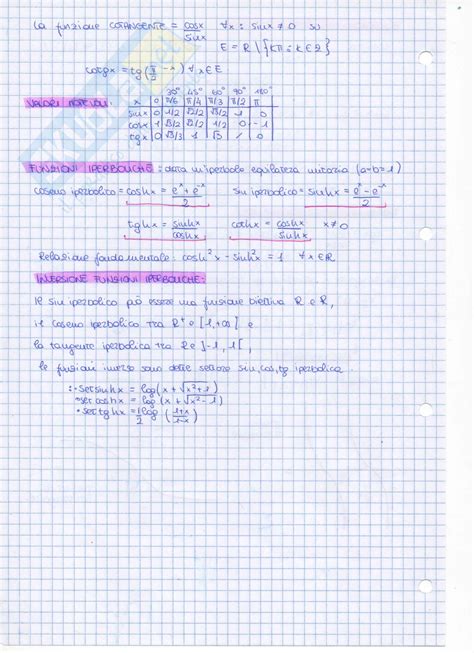 La funzione COTANGENTE = cosx/sinx ∀x : sinx ≠ 0 su
E = R \ {kπ : k ∈ Z}
cotgx = tg(π/2 - x) ∀x ∈ E
30° 45° 60° 90° 180°
VALORI NOTEVOLI: x | 0 | π/6 | π/4 | π/3 | π/2 | π
sinx | 0 | 1/2 | √2/2 | √3/2 | 1 | 0
cosx | 1 | √3/2 | √2/2 | 1/2 | 0 | -1
tgx | 0 | √3/3 | 1 | √3 | / | 0
FUNZIONI IPERBOLICHE: data un'iperbole equilatera unitaria (a=b=1)
coseno iperbolico = coshx = (e^x + e^-x)/2 sin iperbolico = sinhx = (e^x - e^-x)/2
tghx = sinhx/coshx cothx = coshx/sinhx x≠0
Relazione fondamentale: cosh²x - sinh²x = 1 ∀x∈R.
INVERSIONE FUNZIONI IPERBOLICHE:
il sin iperbolico può essere una funzione biettiva R e R,
il coseno iperbolico tra R⁺ e [1,+∞[ e
la tangente iperbolica tra R e ]-1, 1[,
le funzioni inverse sono dette settore sin, cos, tg iperbolica.
: • setsinhx = log(x + √x²+1)
• setcoshx = log(x + √x²-1)
• settghx = 1/2 log (1+x/1-x)